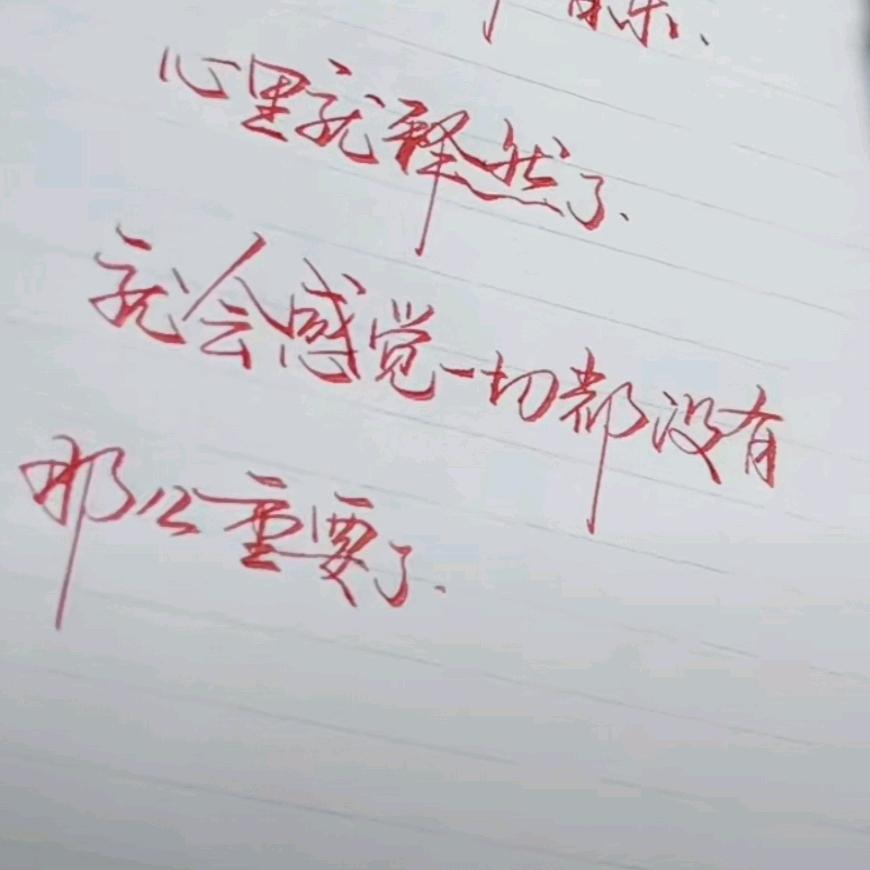 心里就释然了、
就会感觉一切都没有
那么重要了.